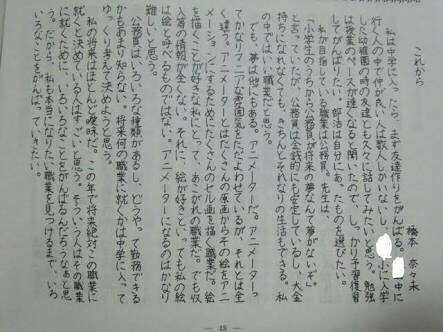 これから
橋本 奈々未
私は中学に入ったら、まず友達作りをがんばる。 中に
行く人の中で仲が良い人は数人しかいないし、 小に入学
した幼稚園の時の友達とも久々に話してみたいと思う。勉強
は授業のペースが速くなると聞いたので、しっかり予習復習
してがんばりたい。部活は自分にあったものを選びたい。
私が目指している職業は公務員。先生は、
「小学生のうちから公務員が将来の夢なんて夢がないぞ」
と言っていたが、公務員は金銭的にも安定しているし、大金
持ちになれなくても、きちんとそれなりの生活もできる。私
の中では、いい職業だと思う。
でも、夢は他にもある。アニメーターだ。アニメーターっ
てかなりマニアな雰囲気をただよわせているが、それとは全
く違う。アニメーターとはたくさんの原画からその絵をアニ
メーションにするためにたくさんのセル画を描く職業だ。絵
を描くことが好きな私にとって、あこがれの職業だ。でも収
入等の情報が全くない。それに、絵が好きといっても私の絵
は絵と呼べるものではない。アニメーターになるのはかなり
難しいと思う。
公務員はいろいろな種類があるし、どうやって勤務できる
かもあまり知らない。将来何の職業に就くかは中学に入って
ゆっくり考えて決めようと思う。
私の将来はほとんど曖昧だ。この年で将来絶対この職業に
就くと決めている人はすごいと思う。そういう人はその職業
に就くために、いろいろなことをがんばるんだろうなぁと思
う。だから、私も本当になりたい職業を見つけるまで、いろ
いろなことをがんばっていきたい。
— 48 —